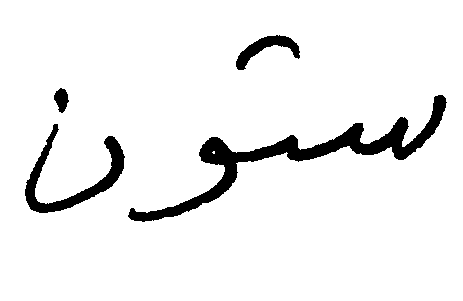 ستون